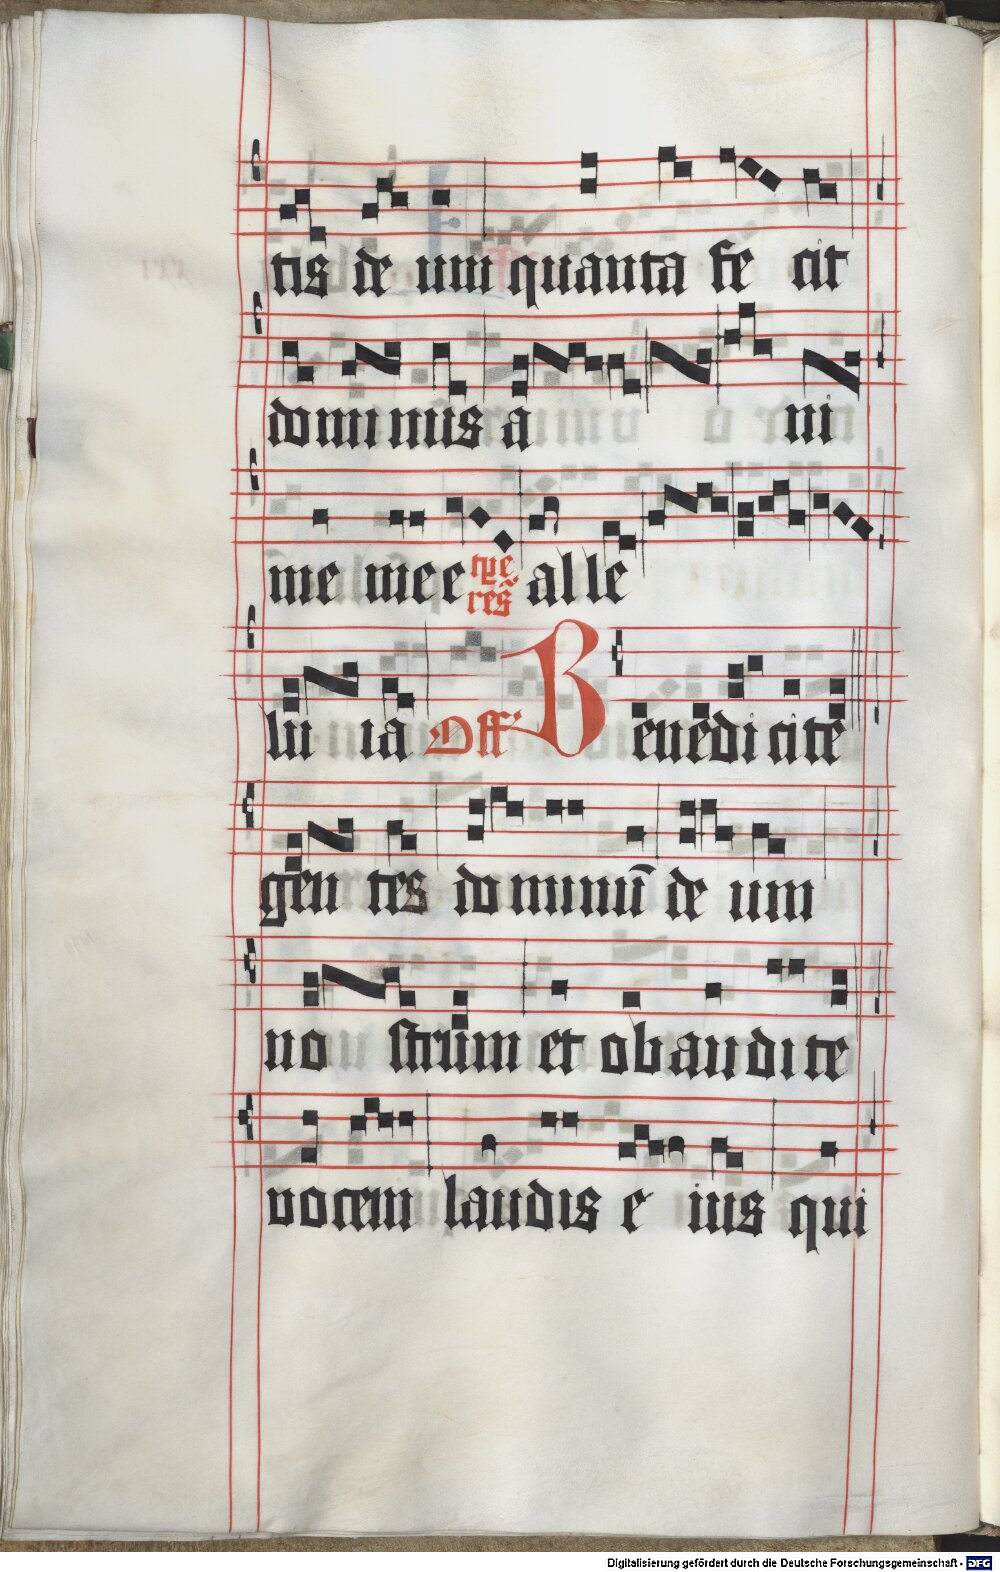 tis de um quanta fe cit
dominus a ni
me mee tpe res̃ alle
lu ia Off Benedicite
gen tes do minū de um
no strum et obaudite
vocem laudis e ius qui
Digitalisierung gefördert durch die Deutsche Forschungsgemeinschaft - DFG